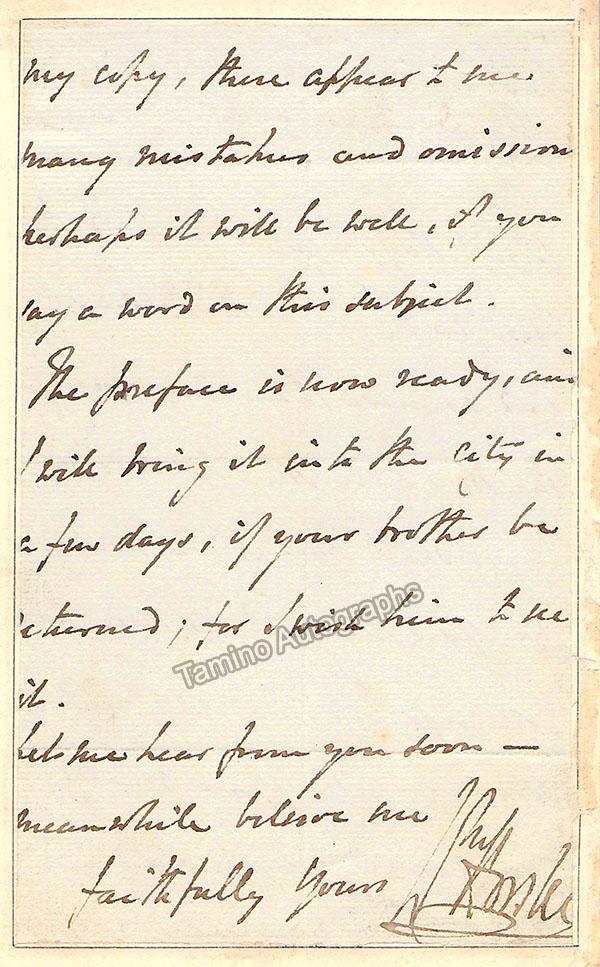 my copy, there appear to me
many mistakes and omission
perhaps it will be well, if you
say a word on this subject.
The preface is now ready, and
I will bring it into the City in
a few days, if your brother be
returned; for I wish him to see
it.
Let me hear from you soon —
meanwhile believe me
faithfully Yours
Tamino Autographs